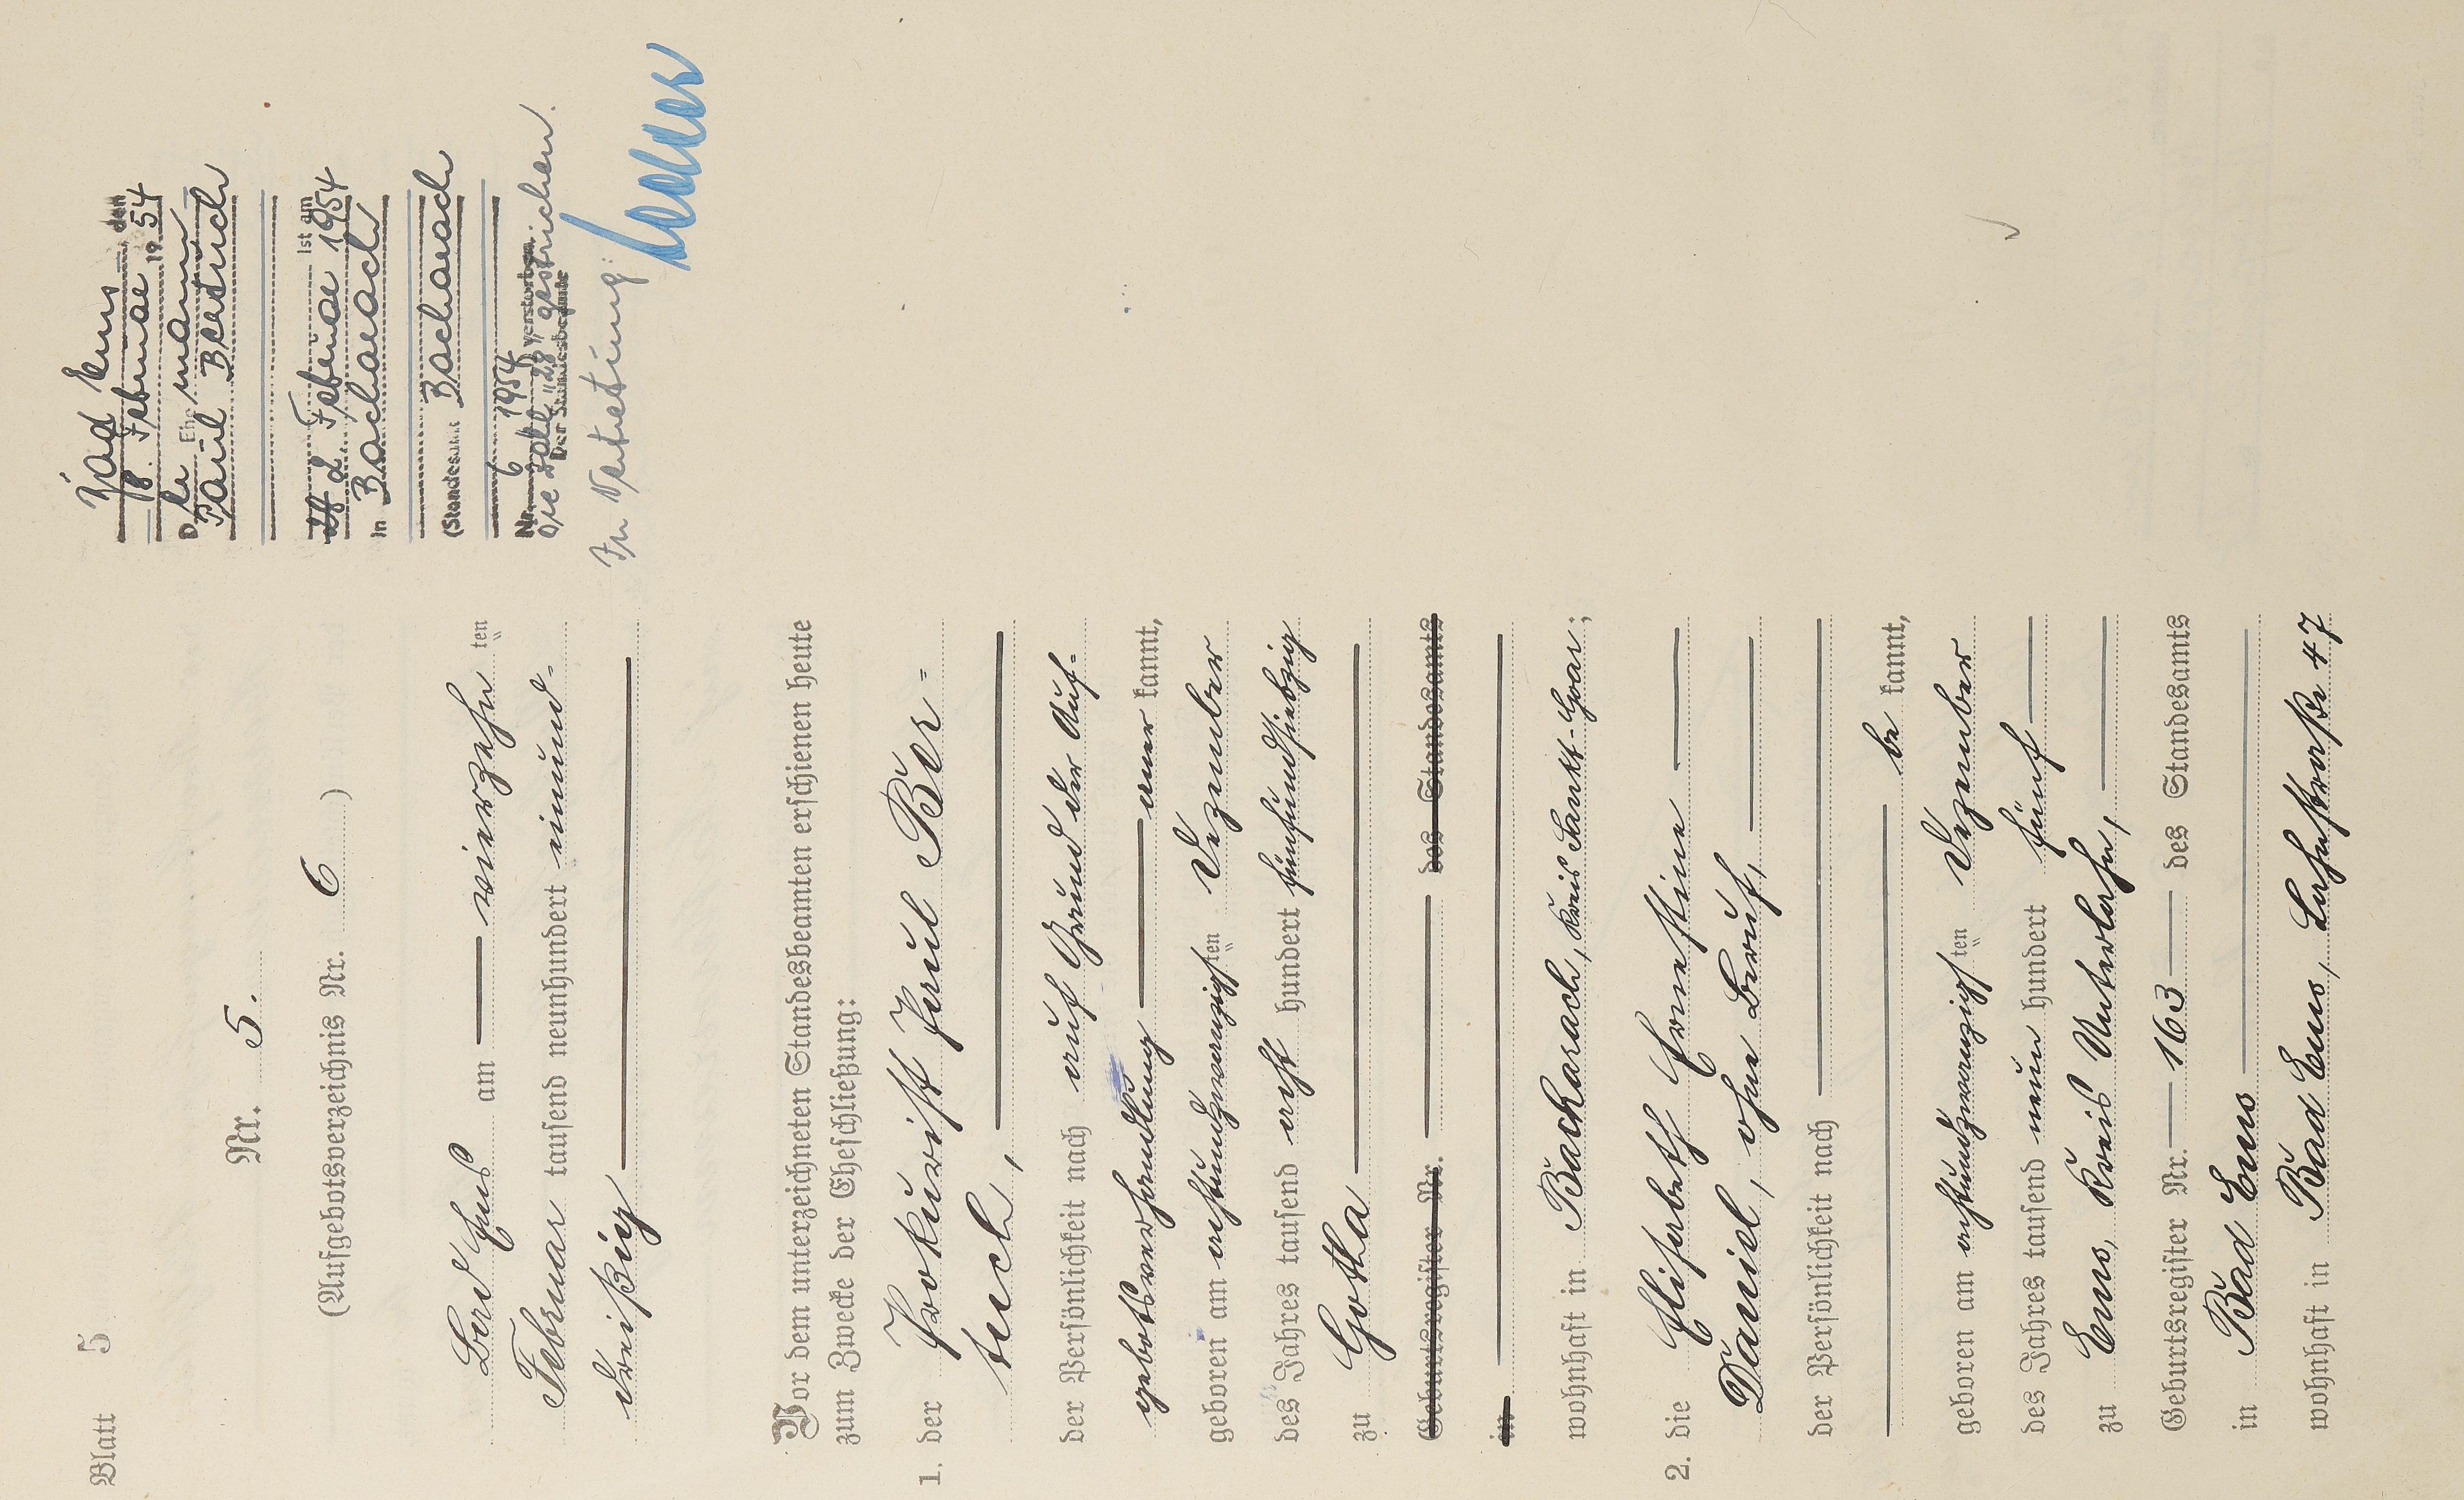 Blatt 5
Nr. 5.
(Aufgebotsverzeichnis Nr. 6)
Bad Ems am vierzehnten
Februar tausend neunhundert einund-
dreißig
Vor dem unterzeichneten Standesbeamten erschienen heute
zum Zwecke der Eheschließung:
1. der Prokurist Paul Ber=
tuch,
der Persönlichkeit nach auf Grund der Auf=
gebotsverhandlung anerkannt,
geboren am achtundzwanzigsten Dezember
des Jahres tausend acht hundert fünfundsiebzig
zu Gotha
Geburtsregister Nr. des Standesamts
in
wohnhaft in Bacharach, Kreis Sankt-Goar;
2. die Elisabeth Ernestine
Daniel, ohne Beruf,
der Persönlichkeit nach
bekannt,
geboren am achtundzwanzigsten Dezember
des Jahres tausend neun hundert fünf
zu Ems, Kreis Unterlahn,
Geburtsregister Nr. 163 des Standesamts
in Bad Ems
wohnhaft in Bad Ems, Lahnstraße 47
Bad Ems, den
18. Februar 1954
Der Ehemann
Paul Bertuch
ist am
2. Februar 1954
in Bacharach
(Standesamt Bacharach
Nr. 6 1954) verstorben.
Der Standesbeamte
Die Zahl "28" gestrichen.
In Vertretung: